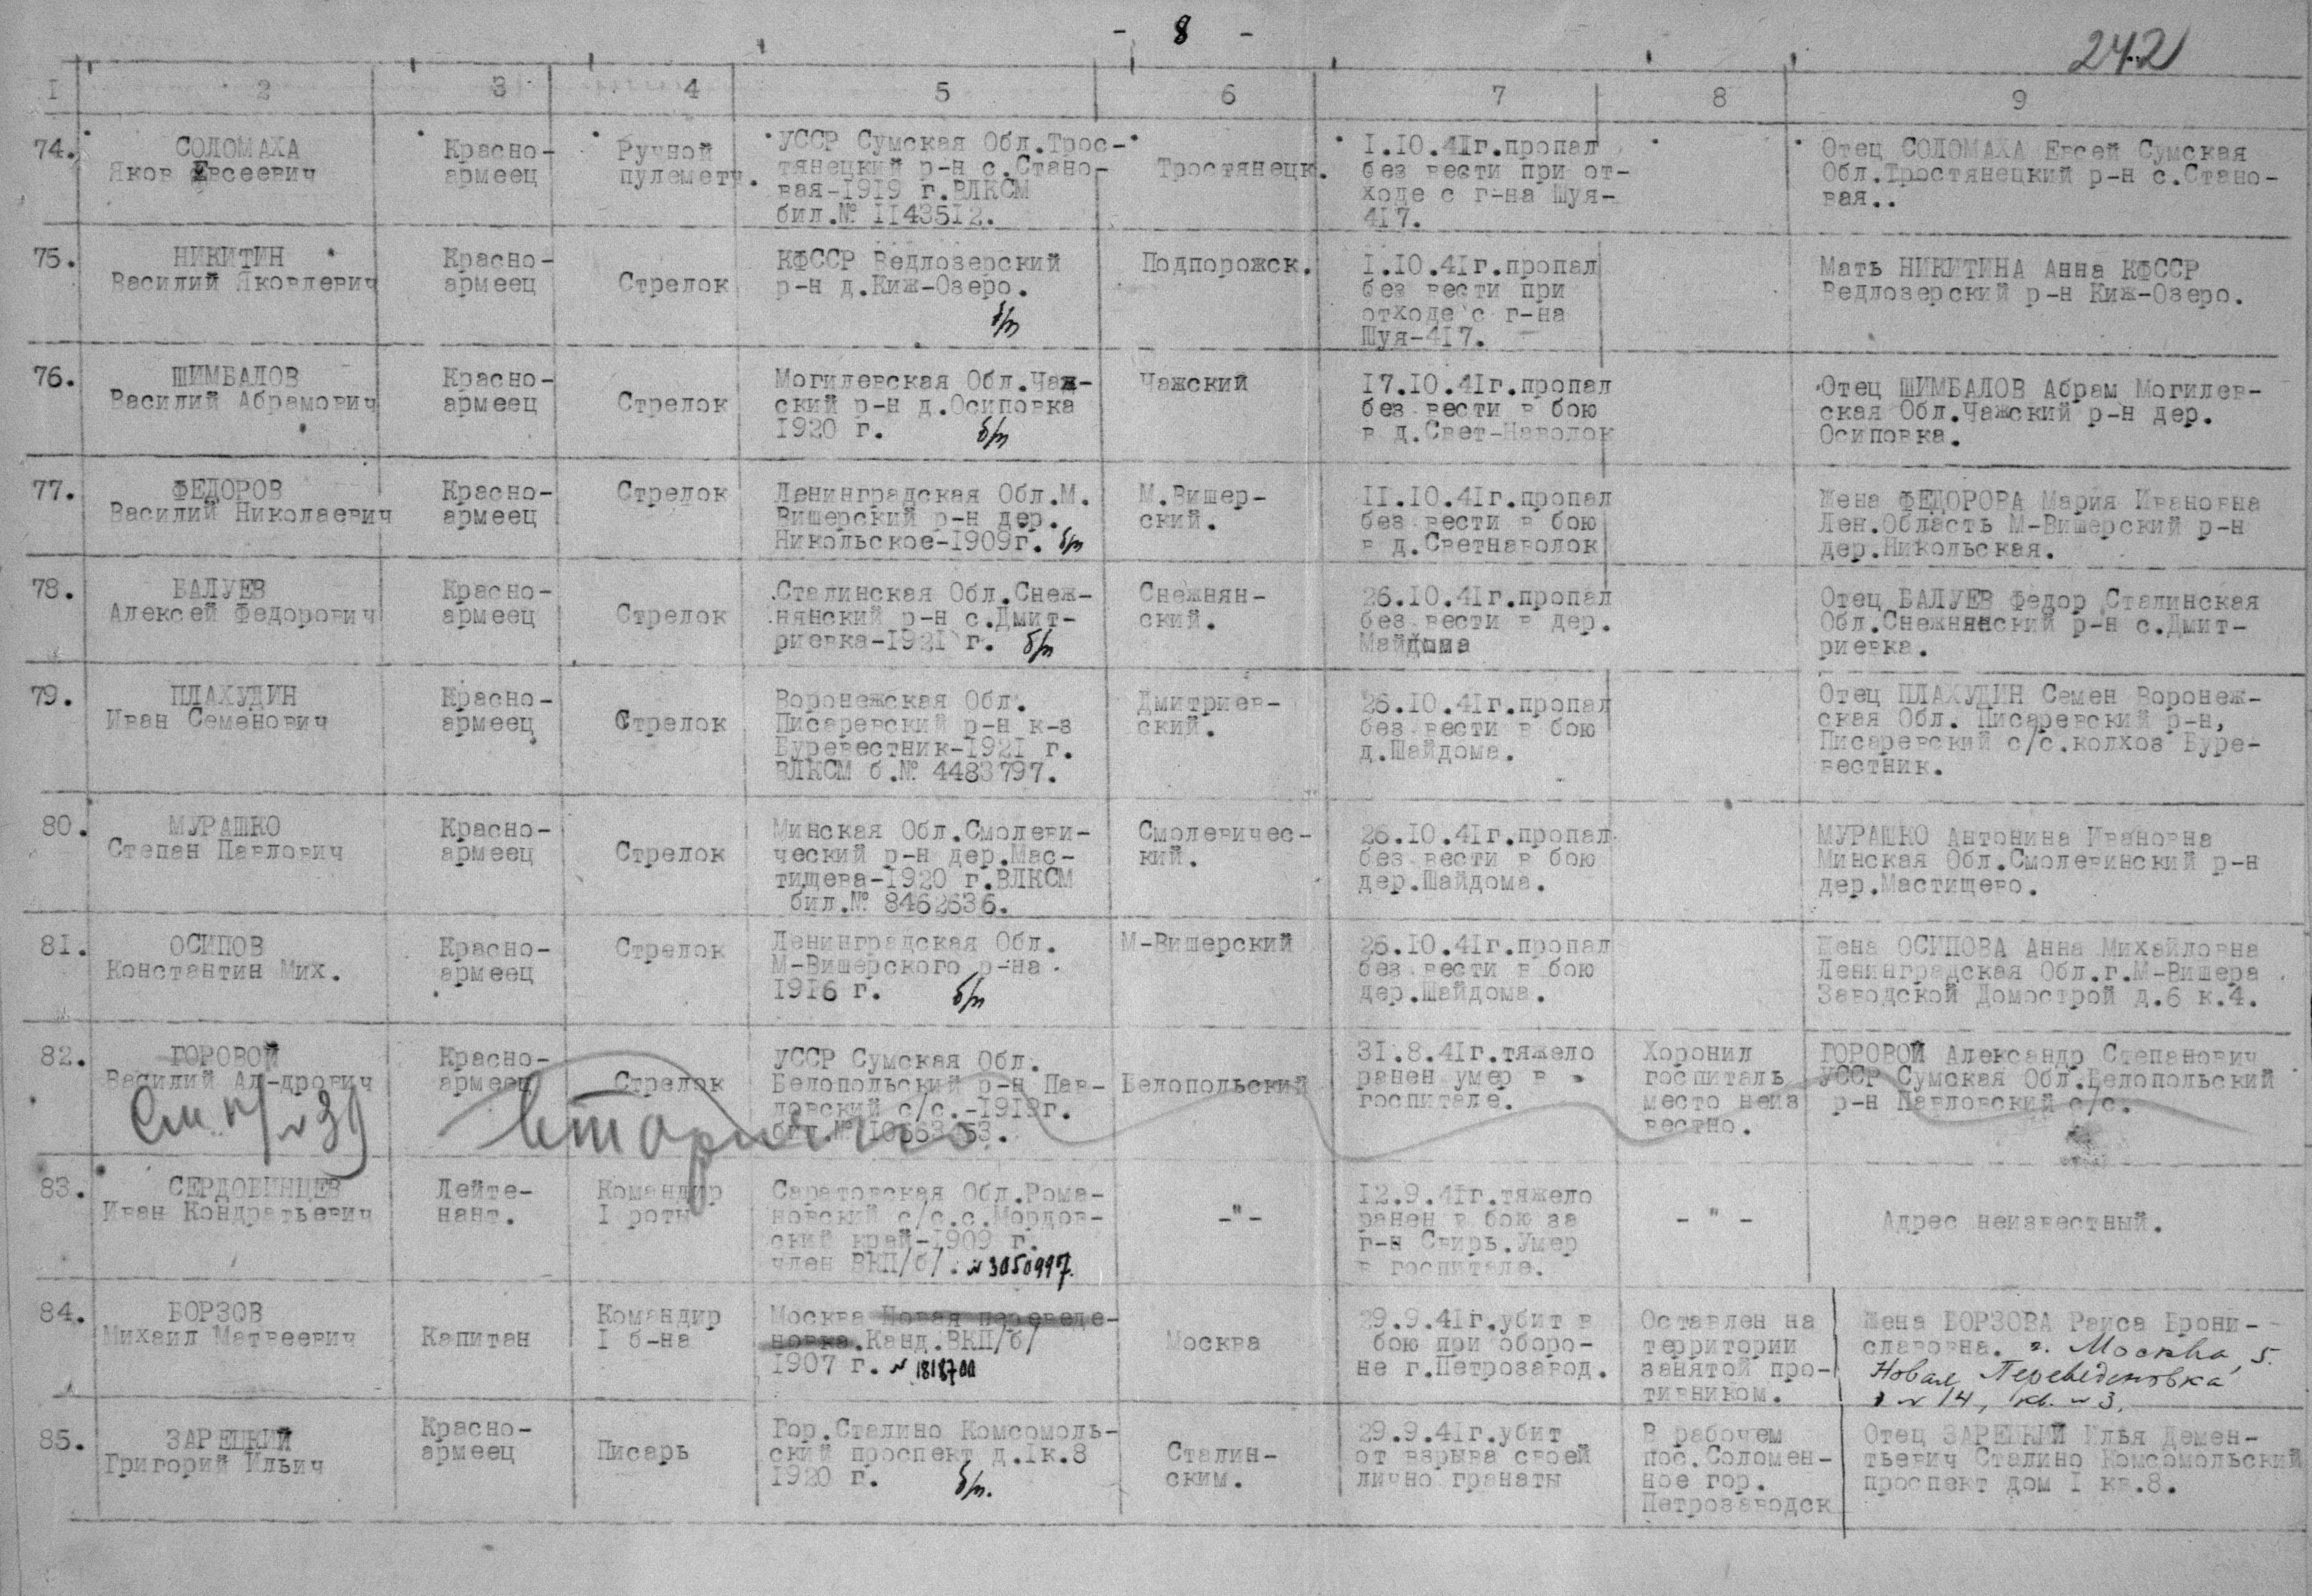 - 8 -
242
1 2 3 4 5 6 7 8 9
74.
СОЛОМАХА
Яков Евсеевич
Красно-
армеец
Ручной
пулеметч.
УССР Сумская Обл.Трос-
тянецкий р-н с.Стано-
вая-1919 г.ВЛКСМ
бил.№ 1143512.
Тростянецк.
1.10.41г.пропал
без вести при от-
ходе с г-на Шуя-
417.
Отец СОЛОМАХА Евсей Сумская
Обл.Тростянецкий р-н с.Стано-
вая..
75.
НИКИТИН
Василий Яковлевич
Красно-
армеец
Стрелок
КФССР Ведлозерский
р-н д.Киж-Озеро.
б/п
Подпорожск.
1.10.41г.пропал
без вести при
отходе с г-на
Шуя-417.
Мать НИКИТИНА Анна КФССР
Ведлозерский р-н Киж-Озеро.
76.
ШИМБАЛОВ
Василий Абрамович
Красно-
армеец
Стрелок
Могилевская Обл.Чаж-
ский р-н д.Осиповка
1920 г. б/п
Чажский
17.10.41г.пропал
без вести в бою
в д.Свет-Наволок
Отец ШИМБАЛОВ Абрам Могилев-
ская Обл.Чажский р-н дер.
Осиповка.
77.
ФЕДОРОВ
Василий Николаевич
Красно-
армеец
Стрелок
Ленинградская Обл.М.
Вишерский р-н дер.
Никольское-1909г. б/п
М.Вишер-
ский.
11.10.41г.пропал
без вести в бою
в д.Светнаволок
Жена ФЕДОРОВА Мария Ивановна
Лен.Область М-Вишерский р-н
дер.Никольская.
78.
БАЛУЕВ
Алексей Федорович
Красно-
армеец
Стрелок
Сталинская Обл.Снеж-
нянский р-н с.Дмит-
риевка-1921 г. б/п
Снежнян-
ский.
26.10.41г.пропал
без вести в дер.
Майдома
Отец БАЛУЕВ Федор Сталинская
Обл.Снежнянский р-н с.Дмит-
риевка.
79.
ПЛАХУДИН
Иван Семенович
Красно-
армеец
Стрелок
Воронежская Обл.
Писаревский р-н к-з
Буревестник-1921 г.
ВЛКСМ б.№ 4483797.
Дмитриев-
ский.
26.10.41г.пропал
без вести в бою
д.Шайдома.
Отец ПЛАХУДИН Семен Воронеж-
ская Обл. Писаревский р-н,
Писаревский с/с.колхоз Буре-
вестник.
80.
МУРАШКО
Степан Павлович
Красно-
армеец
Стрелок
Минская Обл.Смолеви-
ческий р-н дер.Мас-
тищева-1920 г.ВЛКСМ
бил.№ 8462636.
Смолевичес-
кий.
26.10.41г.пропал
без вести в бою
дер.Шайдома.
МУРАШКО Антонина Ивановна
Минская Обл.Смолевинский р-н
дер.Мастищево.
81.
ОСИПОВ
Константин Мих.
Красно-
армеец
Стрелок
Ленинградская Обл.
М-Вишерского р-на.
1916 г. б/п
М-Вишерский
26.10.41г.пропал
без вести в бою
дер.Шайдома.
Жена ОСИПОВА Анна Михайловна
Ленинградская Обл.г.М-Вишера
Заводской Домострой д.6 к.4.
82.
ГОРОВОЙ
Василий Ал-дрович
См п/№39
Красно-
армеец
Стрелок
вторично
УССР Сумская Обл.
Белопольский р-н Пав-
ловский с/с.-1919г.
Белопольский
31.8.41г.тяжело
ранен умер в
госпитале.
Хоронил
госпиталь
место неиз
вестно.
ГОРОВОЙ Александр Степанович
УССР Сумская Обл.Белопольский
р-н Павловский с/с.
83.
СЕРДОБИНЦЕВ
Иван Кондратьевич
Лейте-
нант.
Командир
1 роты
Саратовская Обл.Рома-
новский с/с.с.Мордов-
ский край-1909 г.
член ВКП/б/. №3050997.
-"-
12.9.41г.тяжело
ранен в бою за
г-н Свирь.Умер
в госпитале.
- " -
Адрес неизвестный.
84.
БОРЗОВ
Михаил Матвеевич
Капитан
Командир
1 б-на
Москва Новая переведе-
новка.Канд.ВКП/б/
1907 г. №1818700
Москва
29.9.41г.убит в
бою при оборо-
не г.Петрозавод.
Оставлен на
территории
занятой про-
тивником.
Жена БОРЗОВА Раиса Брони-
славовна. г. Москва, 5.
Новая Переведеновка
№ 14, кв. №3.
85.
ЗАРЕЦКИЙ
Григорий Ильич
Красно-
армеец
Писарь
Гор.Сталино Комсомоль-
ский проспект д.1к.8
1920 г. б/п.
Сталин-
ским.
29.9.41г.убит
от взрыва своей
лично гранаты
В рабочем
пос.Соломен-
ное гор.
Петрозаводск
Отец ЗАРЕЦКИЙ Илья Демен-
тьевич Сталино Комсомольский
проспект дом 1 кв.8.